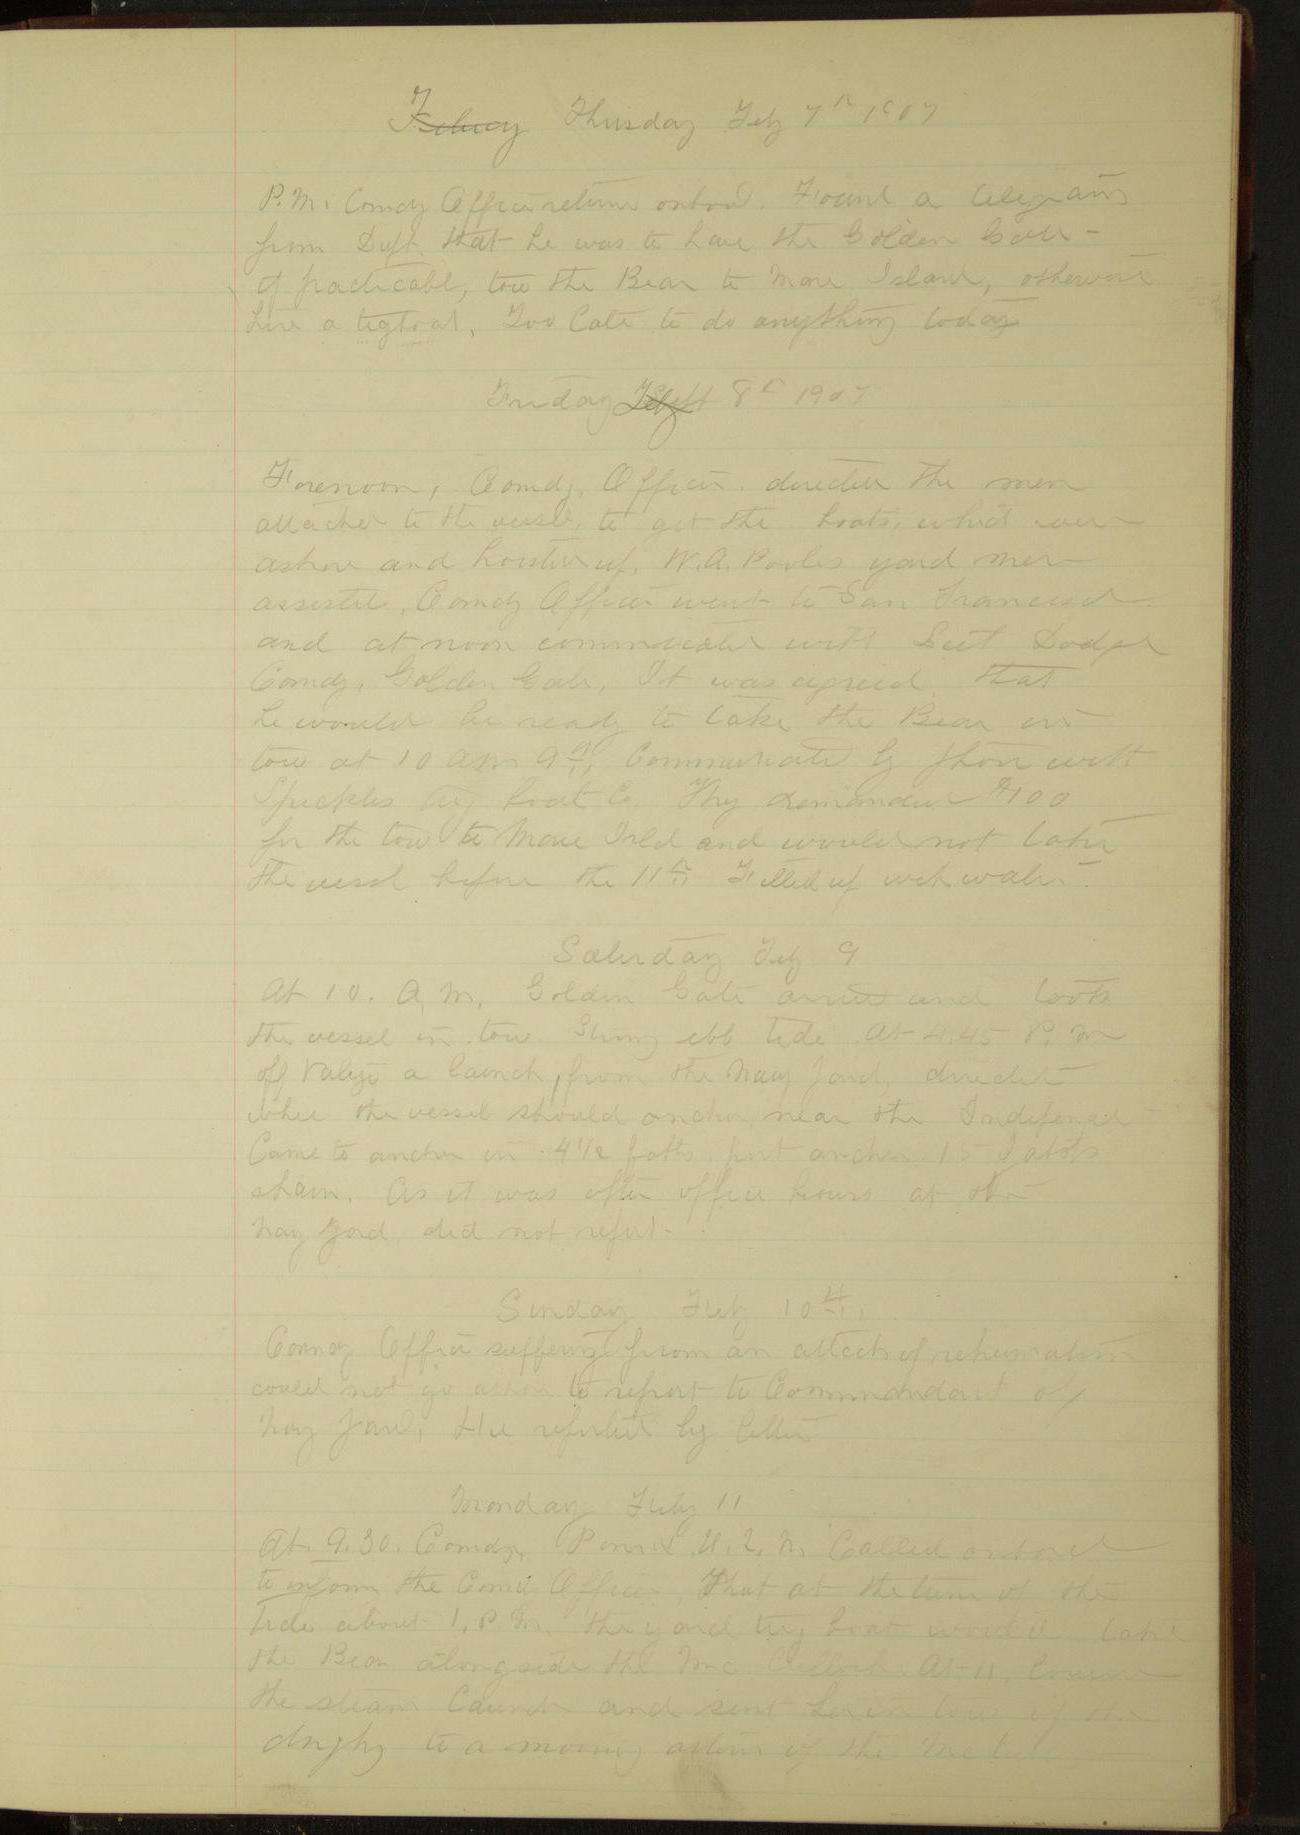 Thursday Feb 7th 1907
P.M. Comdg Officer returned onboard. Found a telegram
from Dept. that he was to have the Golden Gate -
if practicable, tow the Bear to Mare Island, otherwise
hire a tugboat. Too late to do anything today
Friday Feby 8th 1907
Forenoon, Comdg. Officer directed the men
attached to the vessel to get the boats, which were
ashore and hoisted up. W.A. Booles yard men
assisted, Comdg Officer went to San Francisco
and at noon communicated with Lieut Dodge
Comdg. Golden Gate. It was agreed that
he would be ready to take the Bear in
tow at 10 am 9th, Communicated by phone with
Spreckles tug boat Co. They demanded $100
for the tow to Mare Isld and would not take
the vessel before the 11th Filled up with water.
Saturday Feby 9
At 10. A.M. Golden Gate arrived and took
the vessel in tow Strong ebb tide. At 4.45 P.M
off Valejo a launch, from the Navy Yard, directed
where the vessel should anchor near the Independ
Came to anchor in 4 1/2 faths. port anchor 15 faths
chain. As it was after office hours at the
Navy Yard did not report.
Sunday Feby 10th,
Comdg Officer suffering from an attack of rehumatism
could not go ashore to report to Commandant of
Navy Yard, He reported by letter
Monday Feby 11
At 9.30. Comdg. U.S.N. Called onboard
to inform the Comdg Officer, That at the turn of the
tide about 1. P.M. the yard tug boat would take
the Bear alongside the McCulloch. At 11, lowered
the steam launch and sent her in tow of the
dinghy to a mooring astern of the